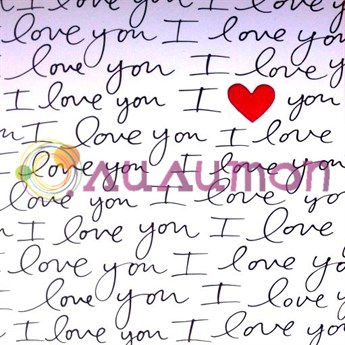 love you I love you I
I love you I love you
I love you I love y
I love you I ❤ you
I love you I love
love you I love you
love you I love you
I love you I love
I love you I love
I love you I love you
I love you I love you
you I love you I